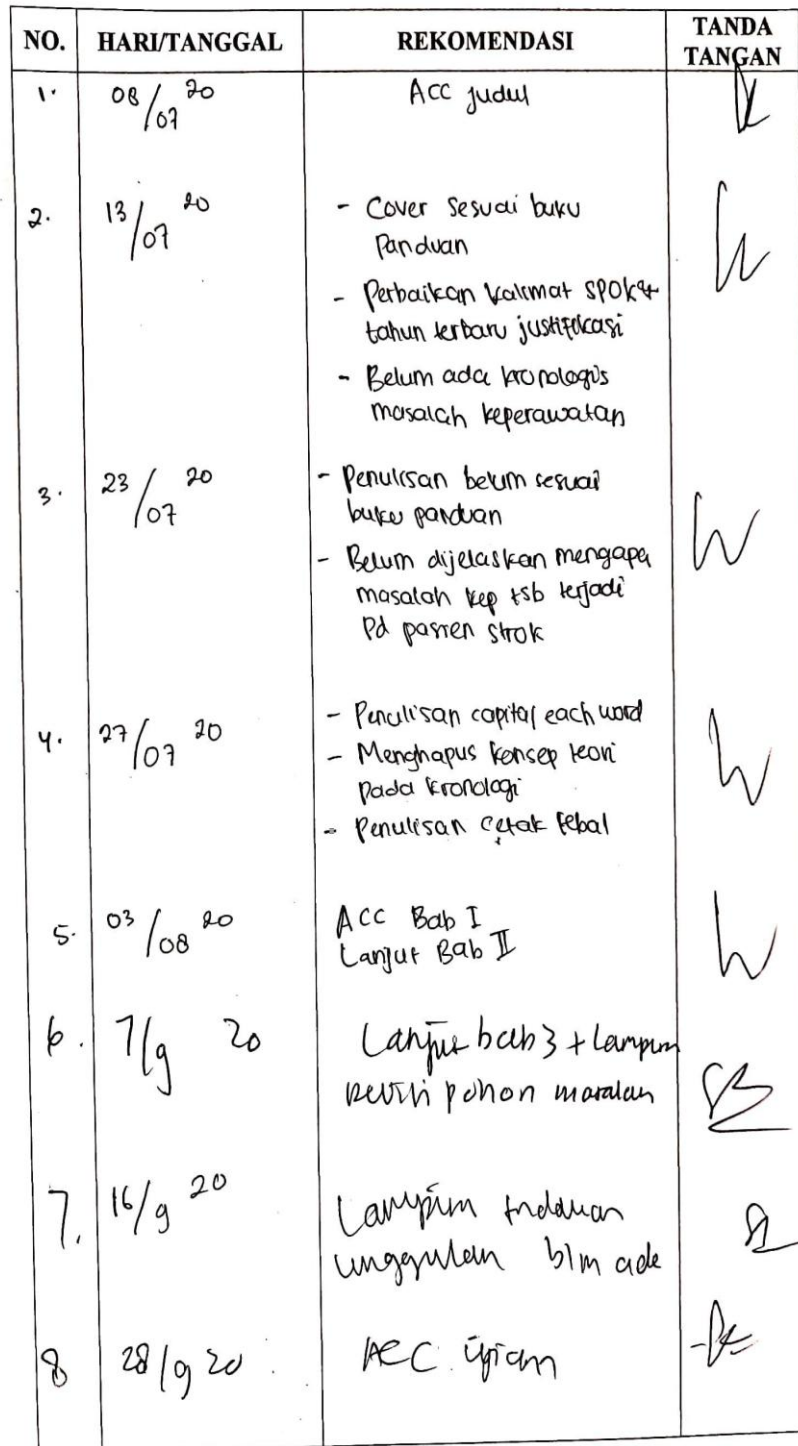 NO. HARI/TANGGAL REKOMENDASI TANDA TANGAN
1. 08/07 20 ACC judul
2. 13/07 20 - Cover sesuai buku
Panduan
- Perbaikan kalimat SPOK &
tahun terbaru justifikasi
- Belum ada kronologis
masalah keperawatan
3. 23/07 20 - Penulisan belum sesuai
buku panduan
- Belum dijelaskan mengapa
masalah kep tsb terjadi
Pd pasien strok
4. 27/07 20 - Penulisan capital each word
- Menghapus konsep teori
pada kronologi
- Penulisan cetak tebal
5. 03/08 20 ACC Bab I
Lanjut Bab II
6. 7/9 20 Lanjut bab 3 + Lampiran
revisi pohon masalah
7. 16/9 20 Lampiran
unggulan blm ada
8 28/9 20 ACC Ujian